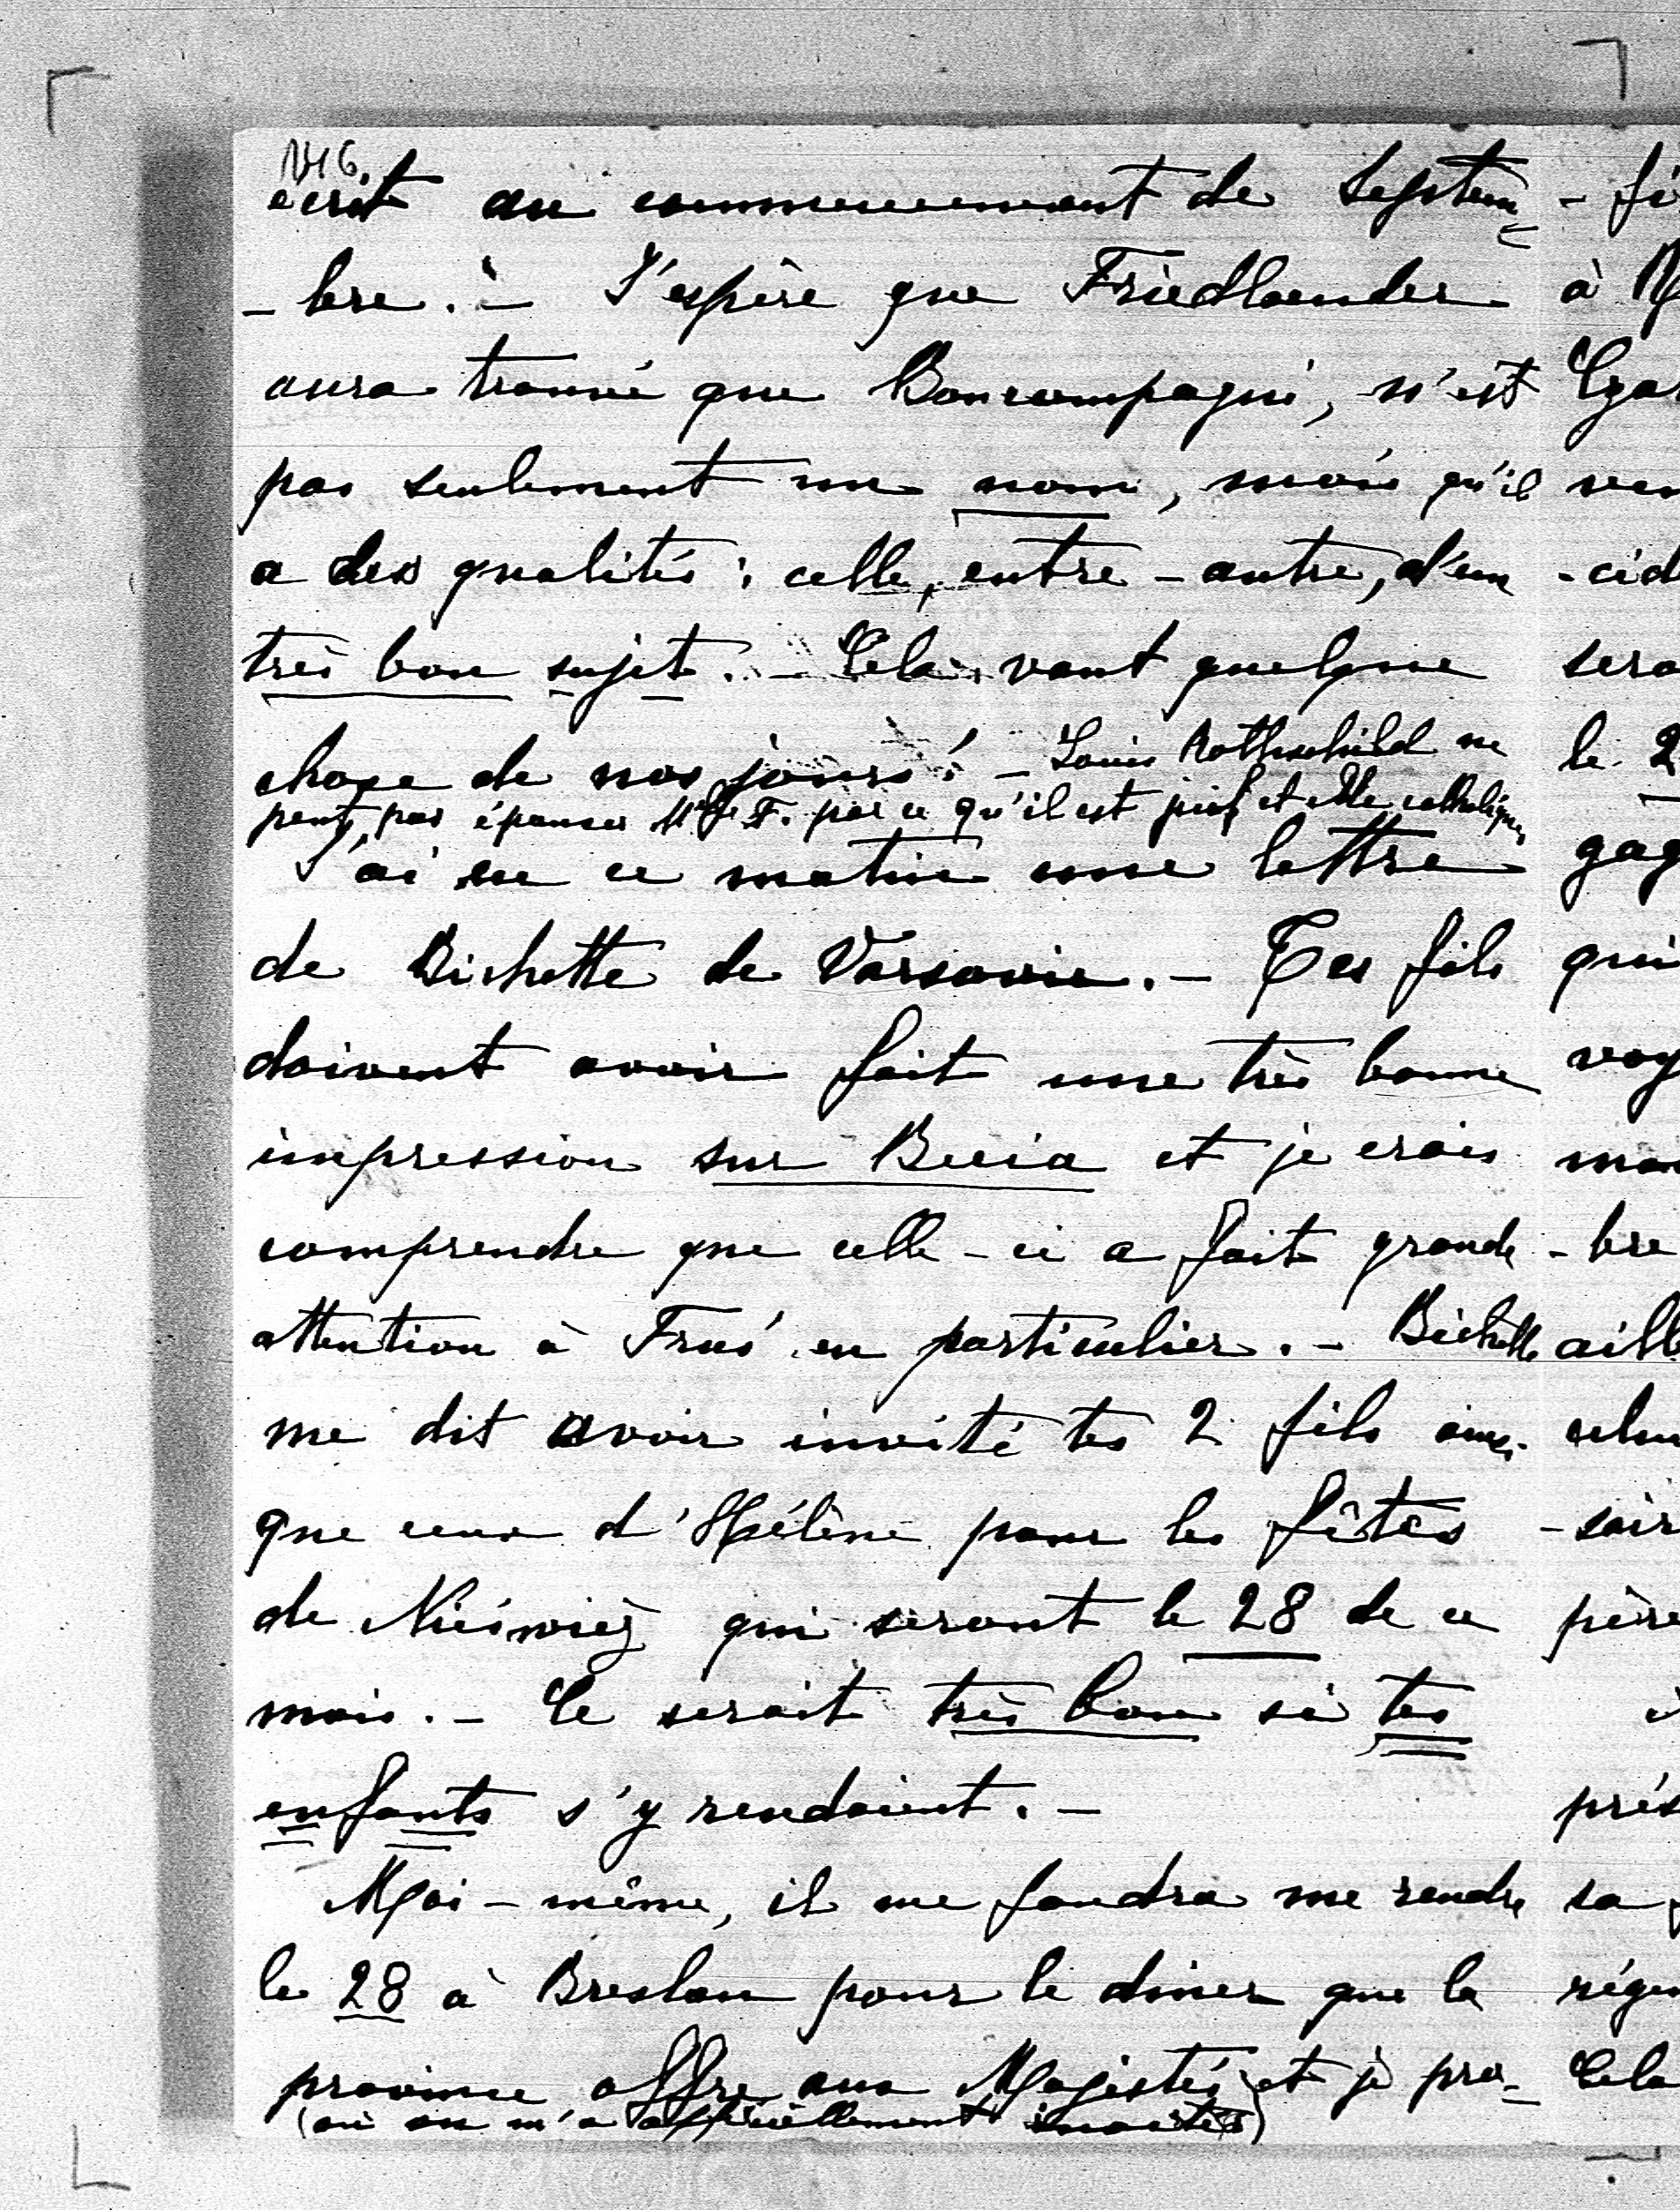 1416.
écrit au commencement de Septem
- bre. - J'espère que Friedlaender
aura trouvé que Boncompagni, n'est
pas seulement un nom, mais qu'il
a des qualités : celle, entre - autre, d'un
très bon sujet. - Cela vaut quelque
chose de nos jours! - Louis Rothschild ne
peut pas épouser Mlle F. par ce qu'il est juif et elle catholique
J'ai eu ce matin une lettre
de Bichette de Varsovie. - Tes fils
doivent avoir fait une très bonne
impression sur et je crois
comprendre que celle - ci a fait grande
attention à en particulier. - Bichette
me dit avoir invité tes 2 fils ainsi
que ceux d'Hélène pour les fêtes
de Niéswież qui seront le 28 de ce
mois. - Ce serait très bon si tes
enfants s'y rendaient. -
Moi - même, il me faudra me rendre
le 28 à Breslau pour le diner que la
province offre aux Majestés et je pro-
(où on m'a officiellement invité)
- fi
à
ven
- cid
sera
le 2
gag
qui
voy
- bre
aill
- soir
père
prés
sa
régu
Cela